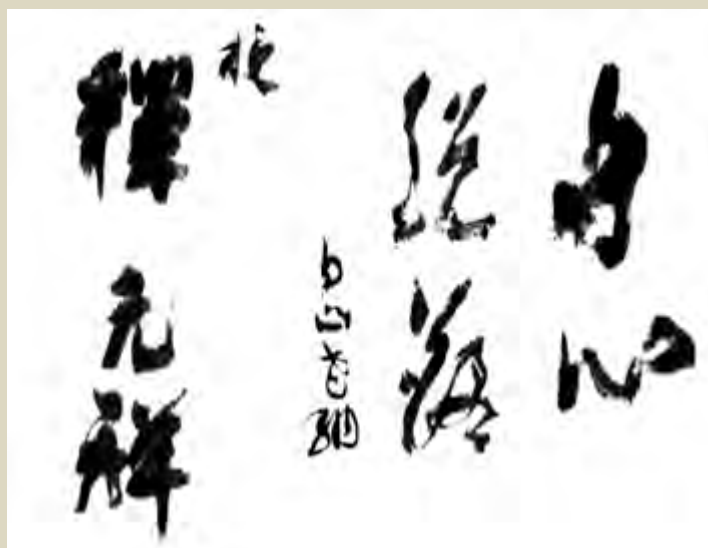 身心
脱落
白山老衲
釋元祥